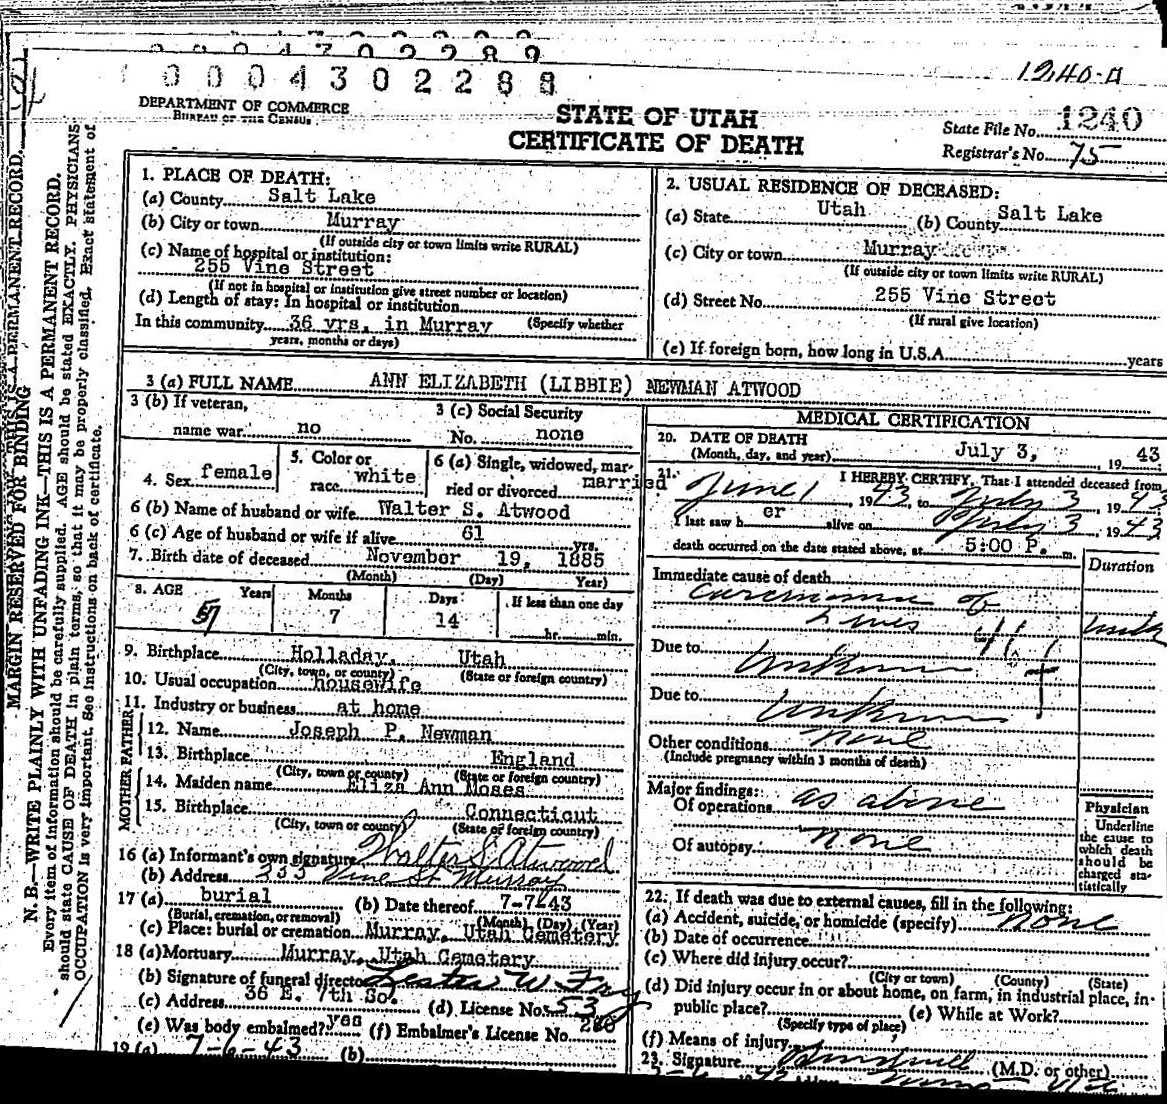 1240-A
0004302288
DEPARTMENT OF COMMERCE
BUREAU OF THE CENSUS
STATE OF UTAH
CERTIFICATE OF DEATH
State File No. 1240
Registrar's No. 75
MARGIN RESERVED FOR BINDING
N. B.—WRITE PLAINLY WITH UNFADING INK—THIS IS A PERMANENT RECORD.
Every item of information should be carefully supplied. AGE should be stated EXACTLY. PHYSICIANS
should state CAUSE OF DEATH in plain terms, so that it may be properly classified. Exact statement of
OCCUPATION is very important. See instructions on back of certificate.
1. PLACE OF DEATH:
(a) County Salt Lake
(b) City or town Murray
(If outside city or town limits write RURAL)
(c) Name of hospital or institution:
255 Vine Street
(If not in hospital or institution give street number or location)
(d) Length of stay: In hospital or institution
In this community 36 yrs. in Murray (Specify whether
years, months or days)
2. USUAL RESIDENCE OF DECEASED:
(a) State Utah (b) County Salt Lake
(c) City or town Murray
(If outside city or town limits write RURAL)
(d) Street No. 255 Vine Street
(If rural give location)
(e) If foreign born, how long in U.S.A. years
3 (a) FULL NAME ANN ELIZABETH (LIBBIE) NEWMAN ATWOOD
3 (b) If veteran,
name war no
3 (c) Social Security
No. none
4. Sex female
5. Color or
race white
6 (a) Single, widowed, mar-
ried or divorced married
6 (b) Name of husband or wife Walter S. Atwood
6 (c) Age of husband or wife if alive 61 yrs.
7. Birth date of deceased November 19, 1885
(Month) (Day) Year)
8. AGE Years Months Days If less than one day
57 7 14 hr. min.
9. Birthplace Holladay, Utah
(City, town, or county) (State or foreign country)
10. Usual occupation housewife
11. Industry or business at home
FATHER
12. Name Joseph P. Newman
13. Birthplace England
(City, town or county) (State or foreign country)
MOTHER
14. Maiden name Eliza Ann Moses
15. Birthplace Connecticut
(City, town or county) (State or foreign country)
16 (a) Informant's own signature Walter S. Atwood
(b) Address 255 Vine St Murray
17 (a) burial (b) Date thereof 7-7-43
(Burial, cremation, or removal) (Month) (Day) (Year)
(c) Place: burial or cremation Murray, Utah Cemetery
18 (a) Mortuary Murray, Utah Cemetery
(b) Signature of funeral director Lester W
(c) Address 36 E. 7th So. (d) License No. 53
(e) Was body embalmed? yes (f) Embalmer's License No.
19 (a) 7-6-43 (b)
MEDICAL CERTIFICATION
20. DATE OF DEATH
(Month, day, and year) July 3, 19 43
21. I HEREBY CERTIFY, That I attended deceased from
June 1 1943, to July 3, 1943
I last saw her alive on July 3, 1943
death occurred on the date stated above, at 5:00 P. m.
Duration
Immediate cause of death
Carcinoma of
Liver
Due to Unknown
Due to Unknown
Other conditions none
(Include pregnancy within 3 months of death)
Major findings:
Of operations as above
Of autopsy none
Physician
Underline
the cause to
which death
should be
charged sta-
tistically
22. If death was due to external causes, fill in the following:
(a) Accident, suicide, or homicide (specify) none
(b) Date of occurrence
(c) Where did injury occur?
(City or town) (County) (State)
(d) Did injury occur in or about home, on farm, in industrial place, in
public place? (e) While at Work?
(Specify type of place)
(f) Means of injury
23. Signature (M.D. or other)